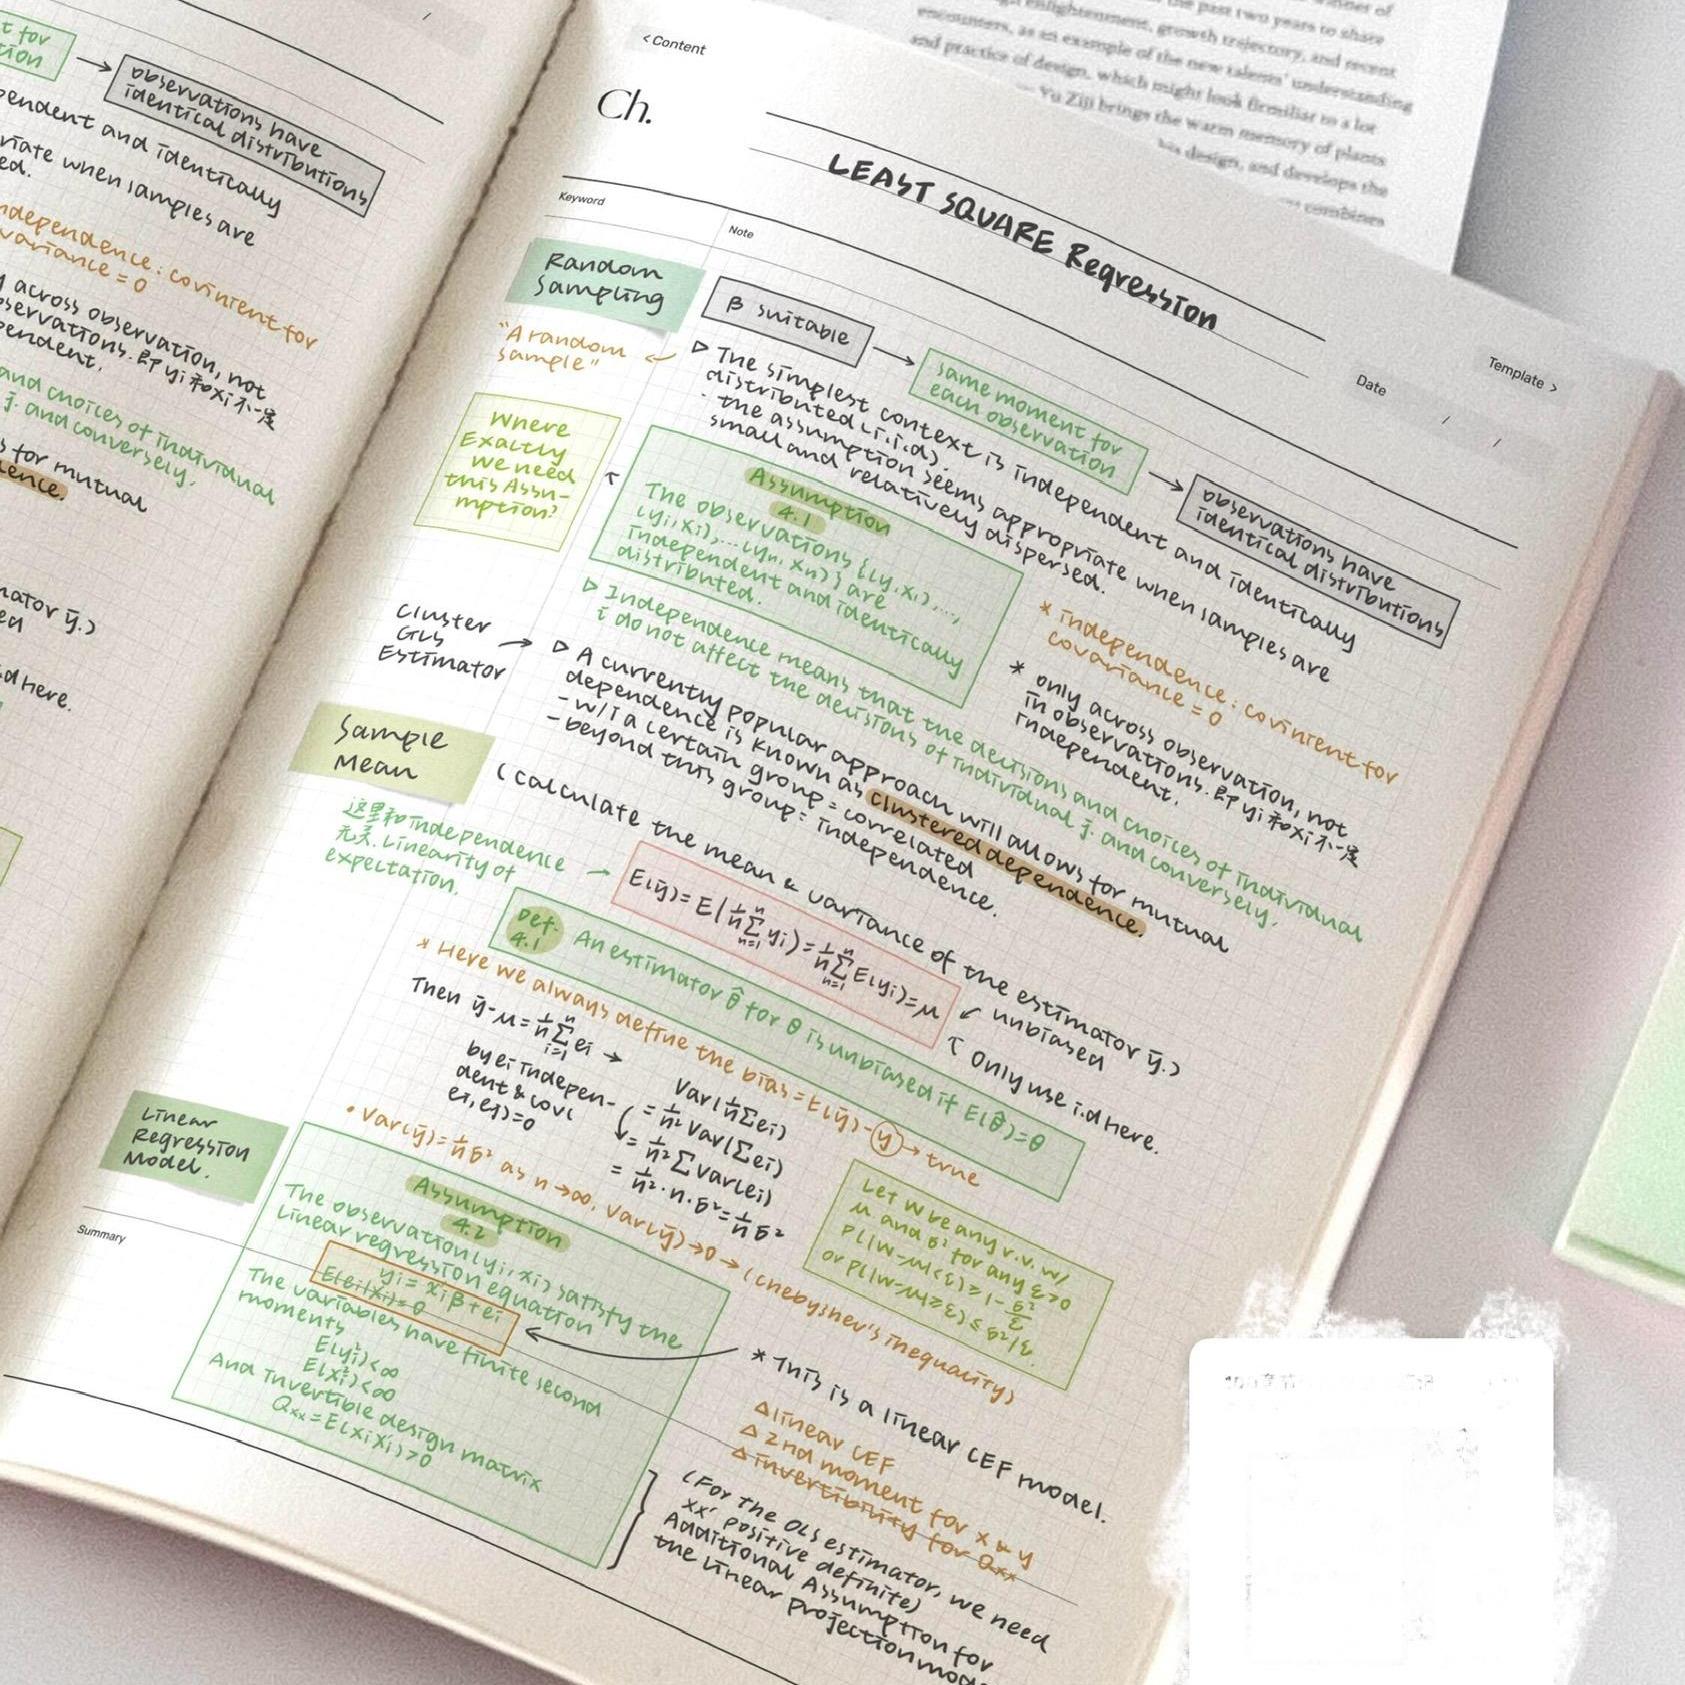 t for
tion
observations have
identical distributions
pendent and identically
riate when samples are
ed.
ndependence: covinient for
variance = 0
y across observation, not
servations. 即 yi 和 xi 不一定
pendent.
and choices of individual
j. and conversely.
s for mutual
dence.
mator ȳ.)
ed
d here.
encounters, as an example of the new talents' understanding
and practice of design, which might look firmiliar to a lot
Yu Ziji brings the warm memory of plants
his design, and develops the
combines
< Content
Ch.
LEAST SQUARE Regression
Date
Template >
Keyword
Note
Random
Sampling
β suitable
same moment for
each observation
observations have
identical distributions
"A random
sample"
▷ The simplest context is independent and identically
distributed (i.i.d).
· the assumption seems appropriate when samples are
small and relatively dispersed.
Where
Exactly
We need
this Assu-
mption?
Assumption
4.1
The observations {(y1, x1), ...,
(yi, xi), ... (yn, xn)} are
independent and identically
distributed.
* independence: covinient for
covariance = 0
* only across observation, not
in observations. 即 yi 和 xi 不一定
independent.
▷ Independence means that the decisions and choices of individual
i do not affect the decisions of individual j. and conversely.
Cluster
GLS
Estimator
▷ A currently popular approach will allows for mutual
dependence is known as clustered dependence.
- w/i a certain group = correlated
- beyond this group = independence.
Sample
Mean
(calculate the mean & variance of the estimator ȳ.)
这里和independence
无关. Linearity of
expectation.
E(ȳ) = E(1/n Σ yi) = 1/n Σ E(yi) = μ
n=1
n
n=1
n
unbiased
Only use i.d here.
Def.
4.1
An estimator θ̂ for θ is unbiased if E(θ̂)=θ
* Here we always define the bias = E(ȳ) - y → true
Then ȳ-μ = 1/n Σ ei →
i=1
n
by ei indepen-
dent & cov(
ei, ej)=0
Var(1/n Σ ei)
= 1/n² Var(Σ ei)
= 1/n² Σ Var(ei)
= 1/n² · n · σ² = 1/n σ²
• Var(ȳ) = 1/n σ² as n → ∞, Var(ȳ) → 0 → (chebyshev's inequality)
Let W be any r.v. w/
μ and σ² for any ε>0
P(|W-μ|<ε) ≥ 1- σ²/ε²
or P(|W-μ|≥ε) ≤ σ²/ε.
Linear
Regression
Model.
Assumption
4.2
The observation (yi, xi) satisfy the
linear regression equation
yi = x'iβ + ei
E(ei|xi)=0
The variables have finite second
moments
E(yi²)<∞
E(xi²)<∞
And invertible design matrix
Qxx = E(xi x'i) > 0
* This is a linear CEF model.
△ linear CEF
△ 2nd moment for x & y
△ invertibility for Qxx
(For the OLS estimator, we need
xx' positive definite)
Additional Assumption for
the linear projection mod
Summary